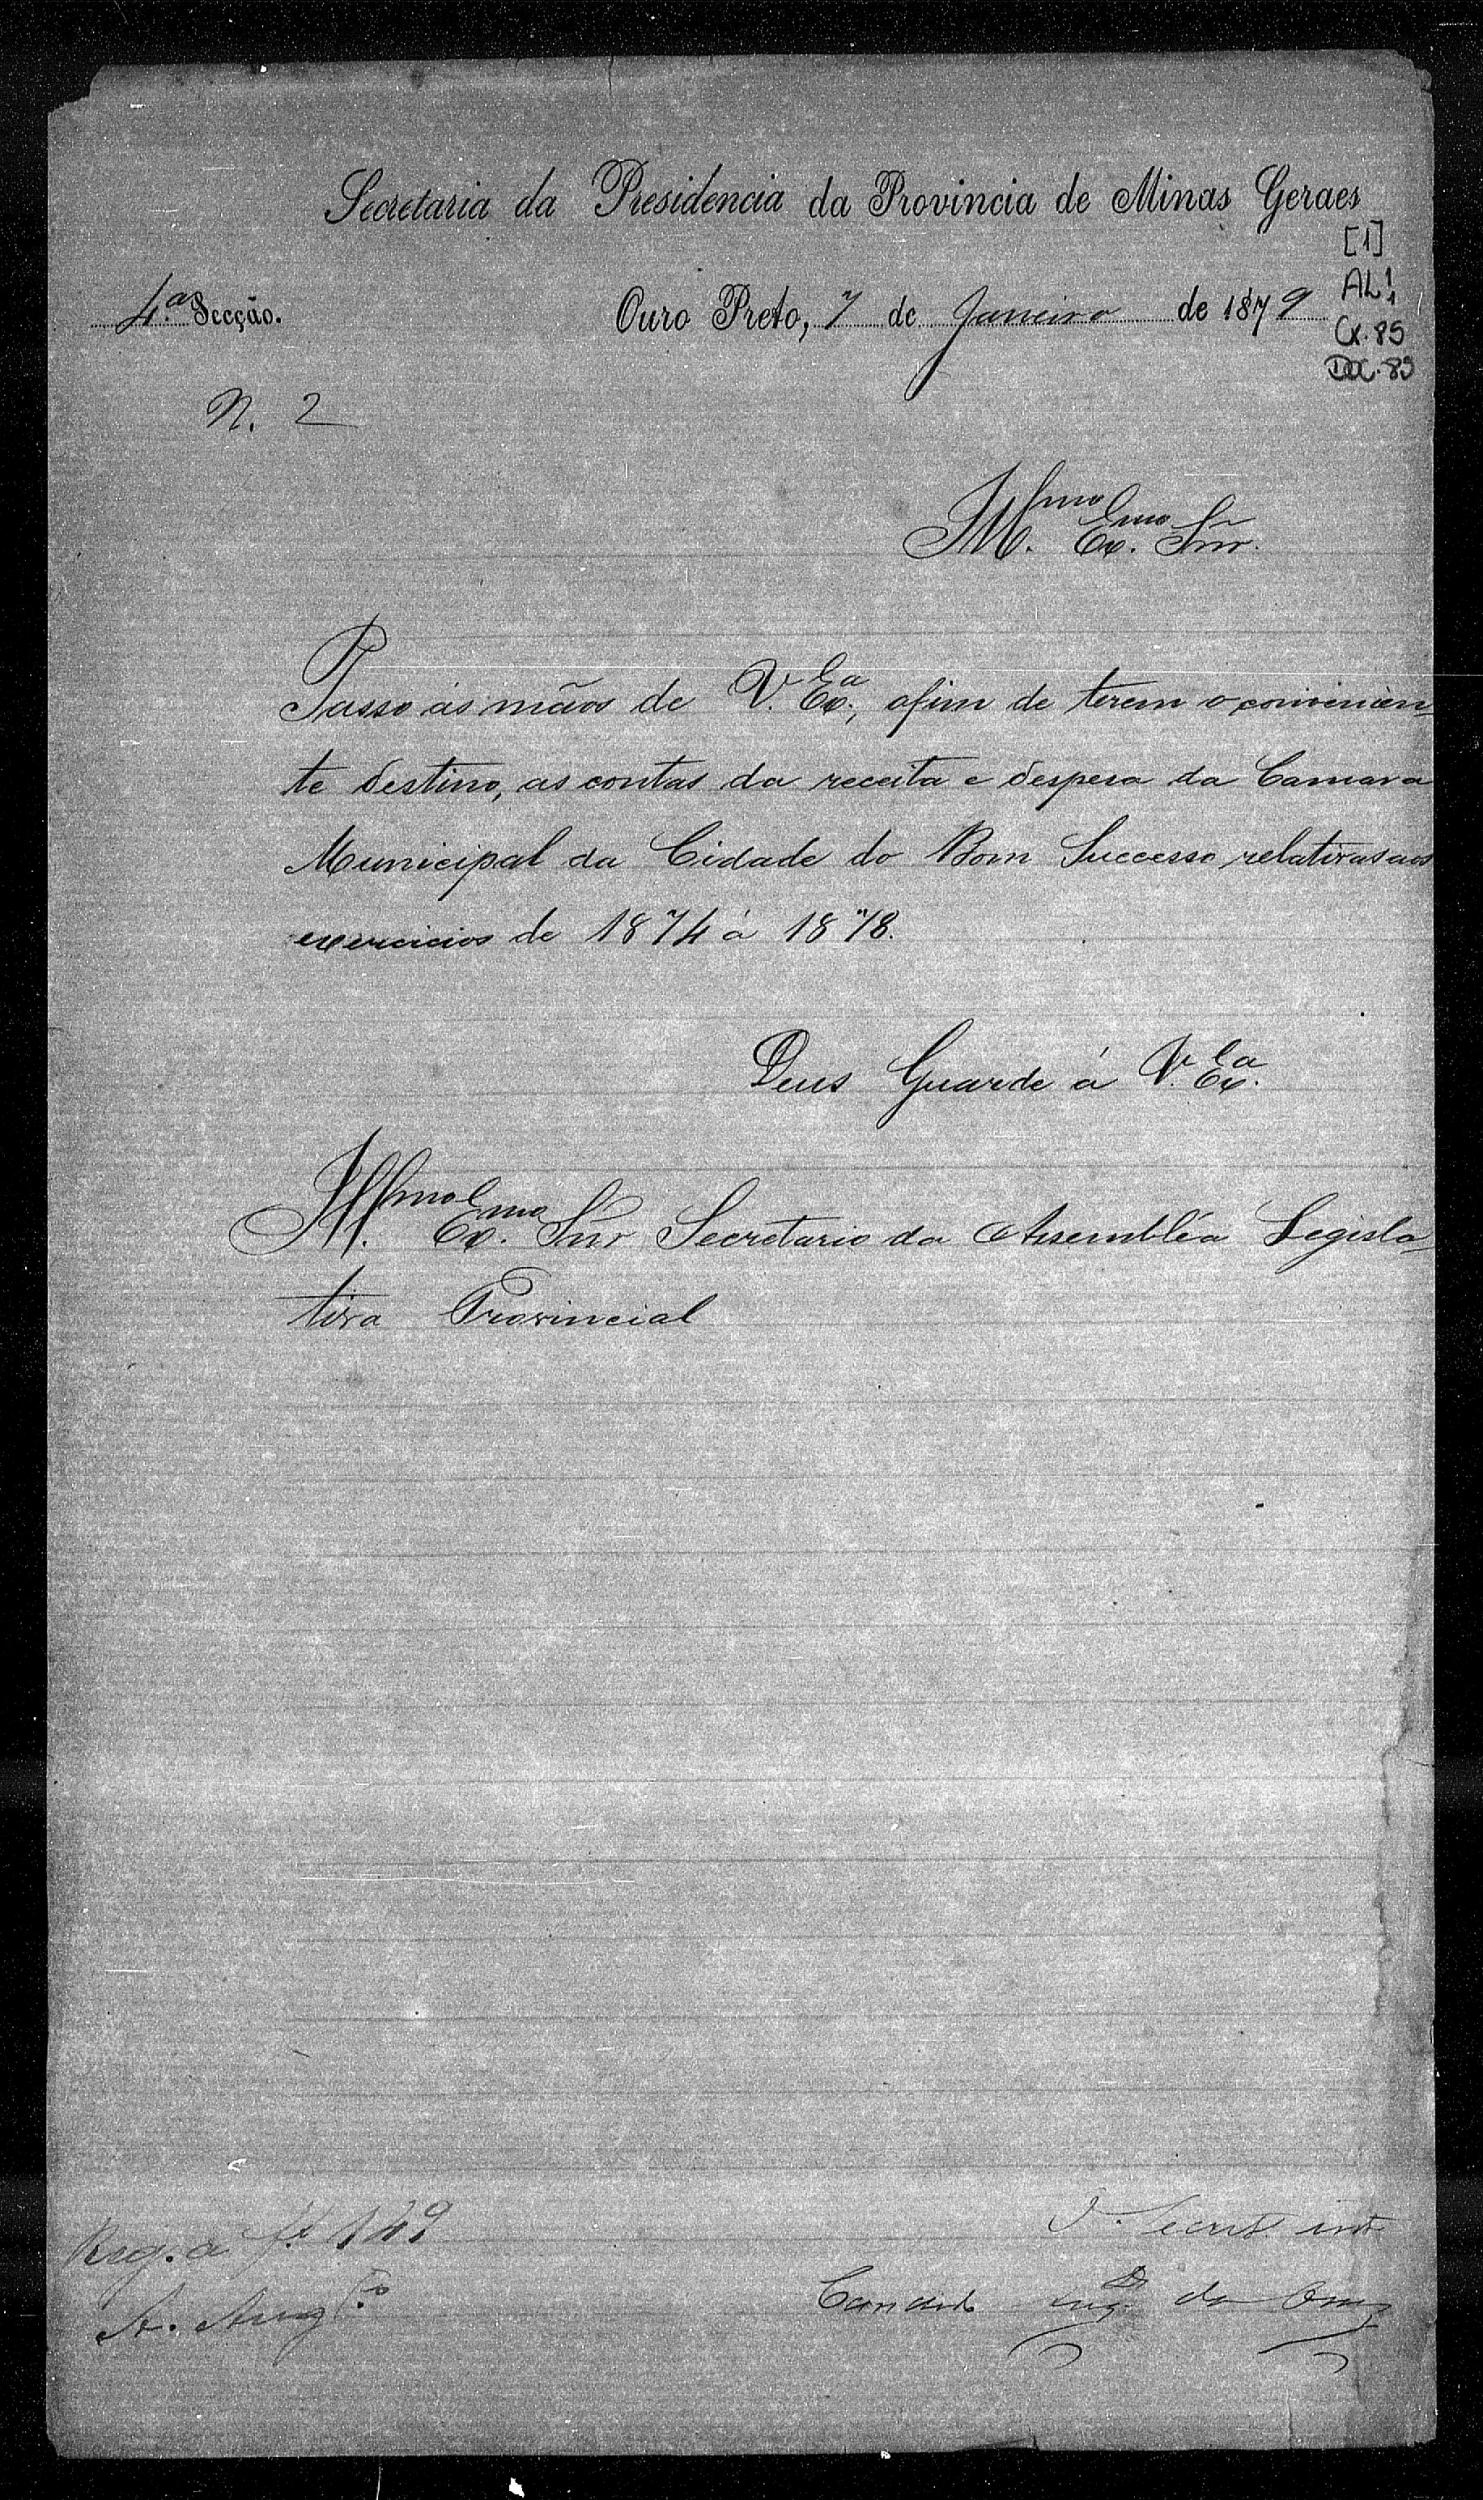 Secretaria da Presidencia da Provincia de Minas Geraes
[1]
AL 1/1
Cx. 85
Doc. 83
4.ª Secção.
Ouro Preto, 7 de Janeiro de 1879
N. 2
Illmo. Exmo. Snr.
Passo ás mãos de V. Exca., afim de terem o convenien-
te destino, as contas da receita e despesa da Camara
Municipal da Cidade do Bom Successo, relativas aos
exercicios de 1874 á 1878.
Deus Guarde á V. Exca.
Illmo. Exmo. Snr Secretario da Assembléa Legisla-
tiva Provincial
O Secret. int.
Reg. a f. 149
Candido da
A. Aug.to